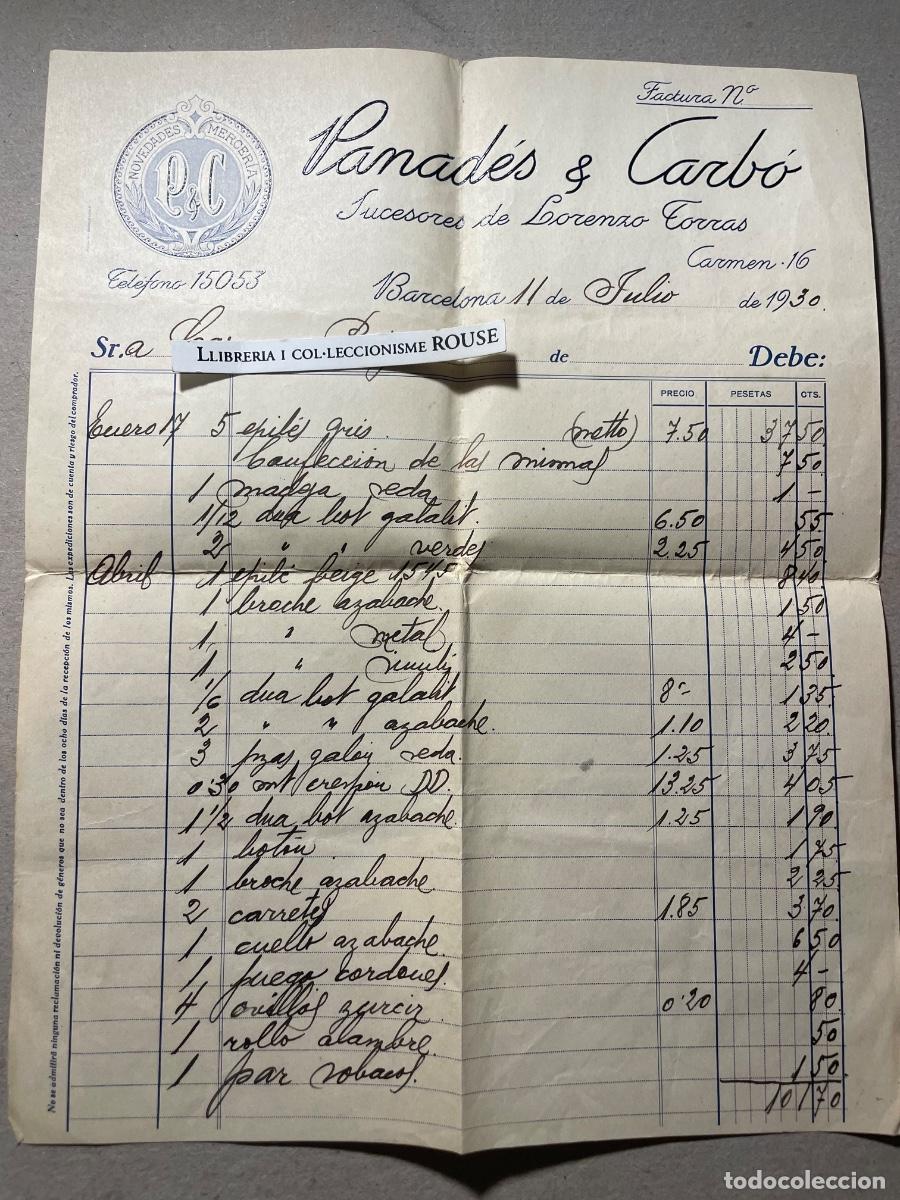 Factura Nº
NOVEDADES MERCERIA
P&C
Panadés & Carbó
Sucesores de Lorenzo Torras
Carmen-16
Teléfono 15053
Barcelona 11 de Julio de 1930.
Sr.a de Debe:
LLIBRERIA I COL·LECCIONISME ROUSE
PRECIO PESETAS CTS.
Enero 17 5 epilés gris. (netto) 7.50 37 50
Confección de las mismas 7 50
1 madeja seda 1 -
1/12 dna bot galalit. 6.50 55
2 " " verdes 2.25 4 50
Abril 1 epilé beige 8 40
1 broche azabache. 1 50
1 " metal 4 -
1 " 2 50
1/6 dna bot galalit 8'- 1 35
2 " " azabache. 1.10 2 20
3 pzas galón seda. 1.25 3 75
0'30 mt crespón DD. 13.25 4 05
1 1/2 dna bot azabache. 1.25 1 90
1 botón 1 75
1 broche azabache 2 25
2 carretes 1.85 3 70
1 cuello azabache. 6 50
1 juego cordones. 4 -
4 ovillos zurcir 0'20 80
1 rollo alambre. 50
1 par sobacos. 1 50
101 70
No se admitirá ninguna reclamación ni devolución de géneros que no sea dentro de los ocho días de la recepción de los mismos. Las expediciones son de cuenta y riesgo del comprador.
todocoleccion